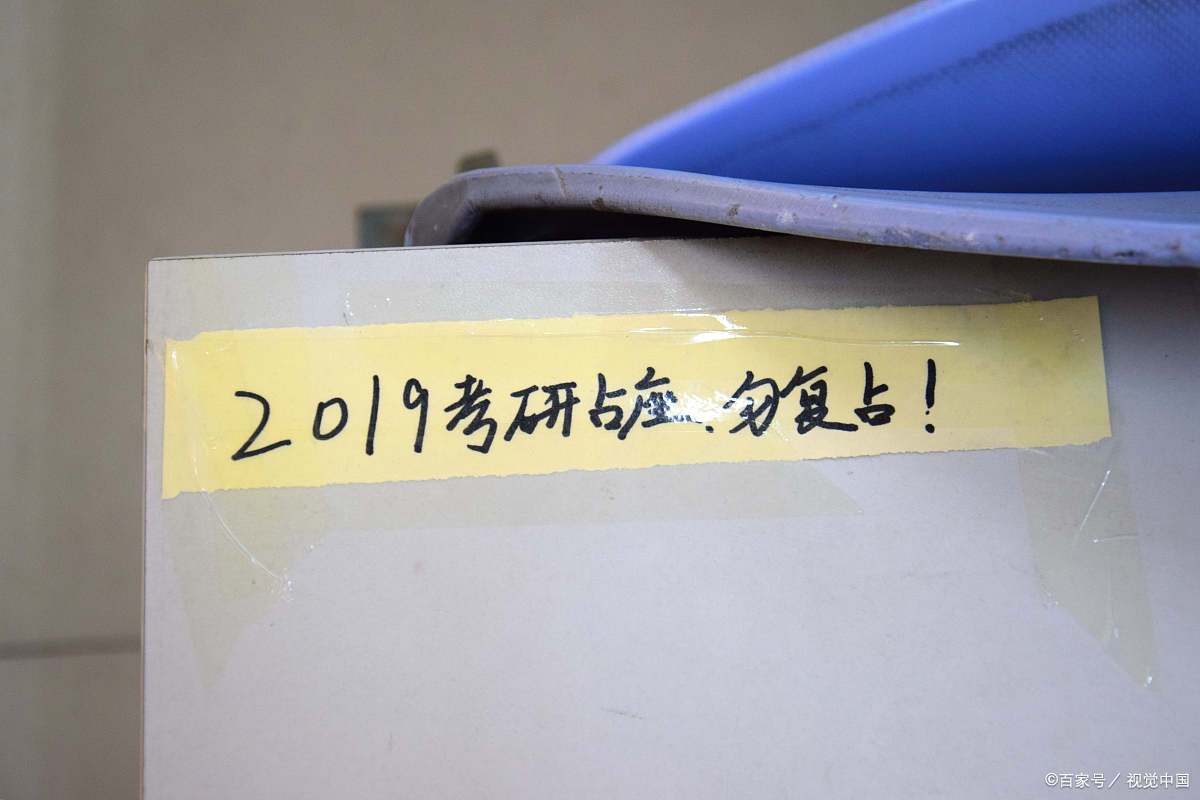 2019考研占座、勿复占！
©百家号／视觉中国